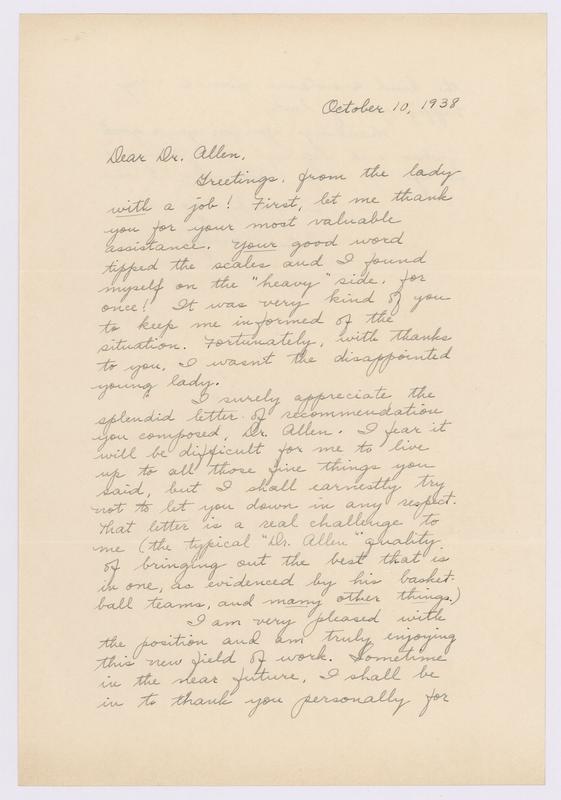 October 10, 1938
Dear Dr. Allen,
Greetings, from the lady
with a job! First, let me thank
you for your most valuable
assistance. Your good word
tipped the scales and I found
myself on the "heavy" side, for
once! It was very kind of you
to keep me informed of the
situation. Fortunately, with thanks
to you, I wasn't the disappointed
young lady.
I surely appreciate the
splendid letter of recommendation
you composed, Dr. Allen. I fear it
will be difficult for me to live
up to all those fine things you
said, but I shall earnestly try
not to let you down in any respect.
That letter is a real challenge to
me (the typical "Dr. Allen" quality
of bringing out the best that is
in one, as evidenced by his basket-
ball teams, and many other things.)
I am very pleased with
the position and am truly enjoying
this new field of work. Sometime
in the near future, I shall be
in to thank you personally for